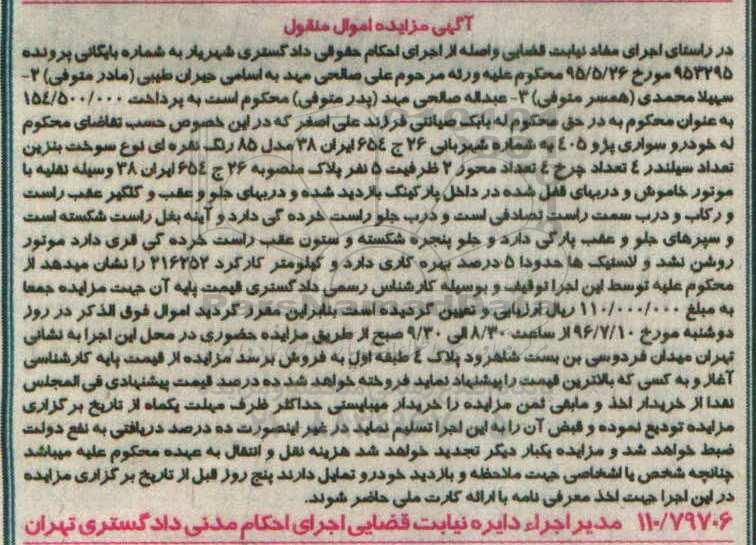 آگهی مزایده اموال منقول
در راستای اجرای مفاد نیابت قضایی واصله از اجرای احکام حقوقی دادگستری شهریار به شماره بایگانی پرونده
۹۵۳۲۹۵ مورخ ۹۵/۵/۲۶ محکوم علیه ورثه مرحوم علی صالحی مهد به اسامی حیران طیبی (مادر متوفی) ۲-
سهیلا محمدی (همسر متوفی) ۳- عبداله صالحی مهد (پدر متوفی) محکوم است به پرداخت ۱۵٤/۵۰۰/۰۰۰
به عنوان محکوم به در حق محکوم له بابک صیانتی فرزند علی اصغر که در این خصوص حسب تقاضای محکوم
له خودرو سواری پژو ٤۰۵ به شماره شهربانی ۲۶ ج ۶۵٤ ایران ۳۸ مدل ۸۵ رنگ نقره ای نوع سوخت بنزین
تعداد سیلندر ٤ تعداد چرخ ٤ تعداد محور ۲ ظرفیت ۵ نفر پلاک منصوبه ۲۶ ج ۶۵٤ ایران ۳۸ وسیله نقلیه با
موتور خاموش و دربهای قفل شده در داخل پارکینگ بازدید شده و دربهای جلو و عقب و گلگیر عقب راست
و رکاب و درب سمت راست تصادفی است و درب جلو راست خرده گی دارد و آینه بغل راست شکسته است
و سپرهای جلو و عقب پارگی دارد و جلو پنجره شکسته و ستون عقب راست خرده گی قری دارد موتور
روشن نشد و لاستیک ها حدودا ۵ درصد بهره کاری دارد و کیلومتر کارکرد ۲۱۶۲۵۲ را نشان میدهد از
محکوم علیه توسط این اجرا توقیف و بوسیله کارشناس رسمی دادگستری قیمت پایه آن جهت مزایده جمعا
به مبلغ ۱۱۰/۰۰۰/۰۰۰ ریال ارزیابی و تعیین گردیده است بنابراین مقرر گردید اموال فوق الذکر در روز
دوشنبه مورخ ۹۶/۷/۱۰ از ساعت ۸/۳۰ الی ۹/۳۰ صبح از طریق مزایده حضوری در محل این اجرا به نشانی
تهران میدان فردوسی بن بست شاهرود پلاک ٤ طبقه اول به فروش برسد مزایده از قیمت پایه کارشناسی
آغاز و به کسی که بالاترین قیمت را پیشنهاد نماید فروخته خواهد شد ده درصد قیمت پیشنهادی فی المجلس
نقدا از خریدار اخذ و مابقی ثمن مزایده را خریدار میبایستی حداکثر ظرف مهلت یکماه از تاریخ برگزاری
مزایده تودیع نموده و قبض آن را به این اجرا تسلیم نماید در غیر اینصورت ده درصد دریافتی به نفع دولت
ضبط خواهد شد و مزایده یکبار دیگر تجدید خواهد شد هزینه نقل و انتقال به عهده محکوم علیه میباشد
چنانچه شخص یا اشخاصی جهت ملاحظه و بازدید خودرو تمایل دارند پنج روز قبل از تاریخ برگزاری مزایده
در این اجرا جهت اخذ معرفی نامه با ارائه کارت ملی حاضر شوند.
۱۱۰/۷۹۷۰۶ مدیر اجراء دایره نیابت قضایی اجرای احکام مدنی دادگستری تهران
ParsNamadData